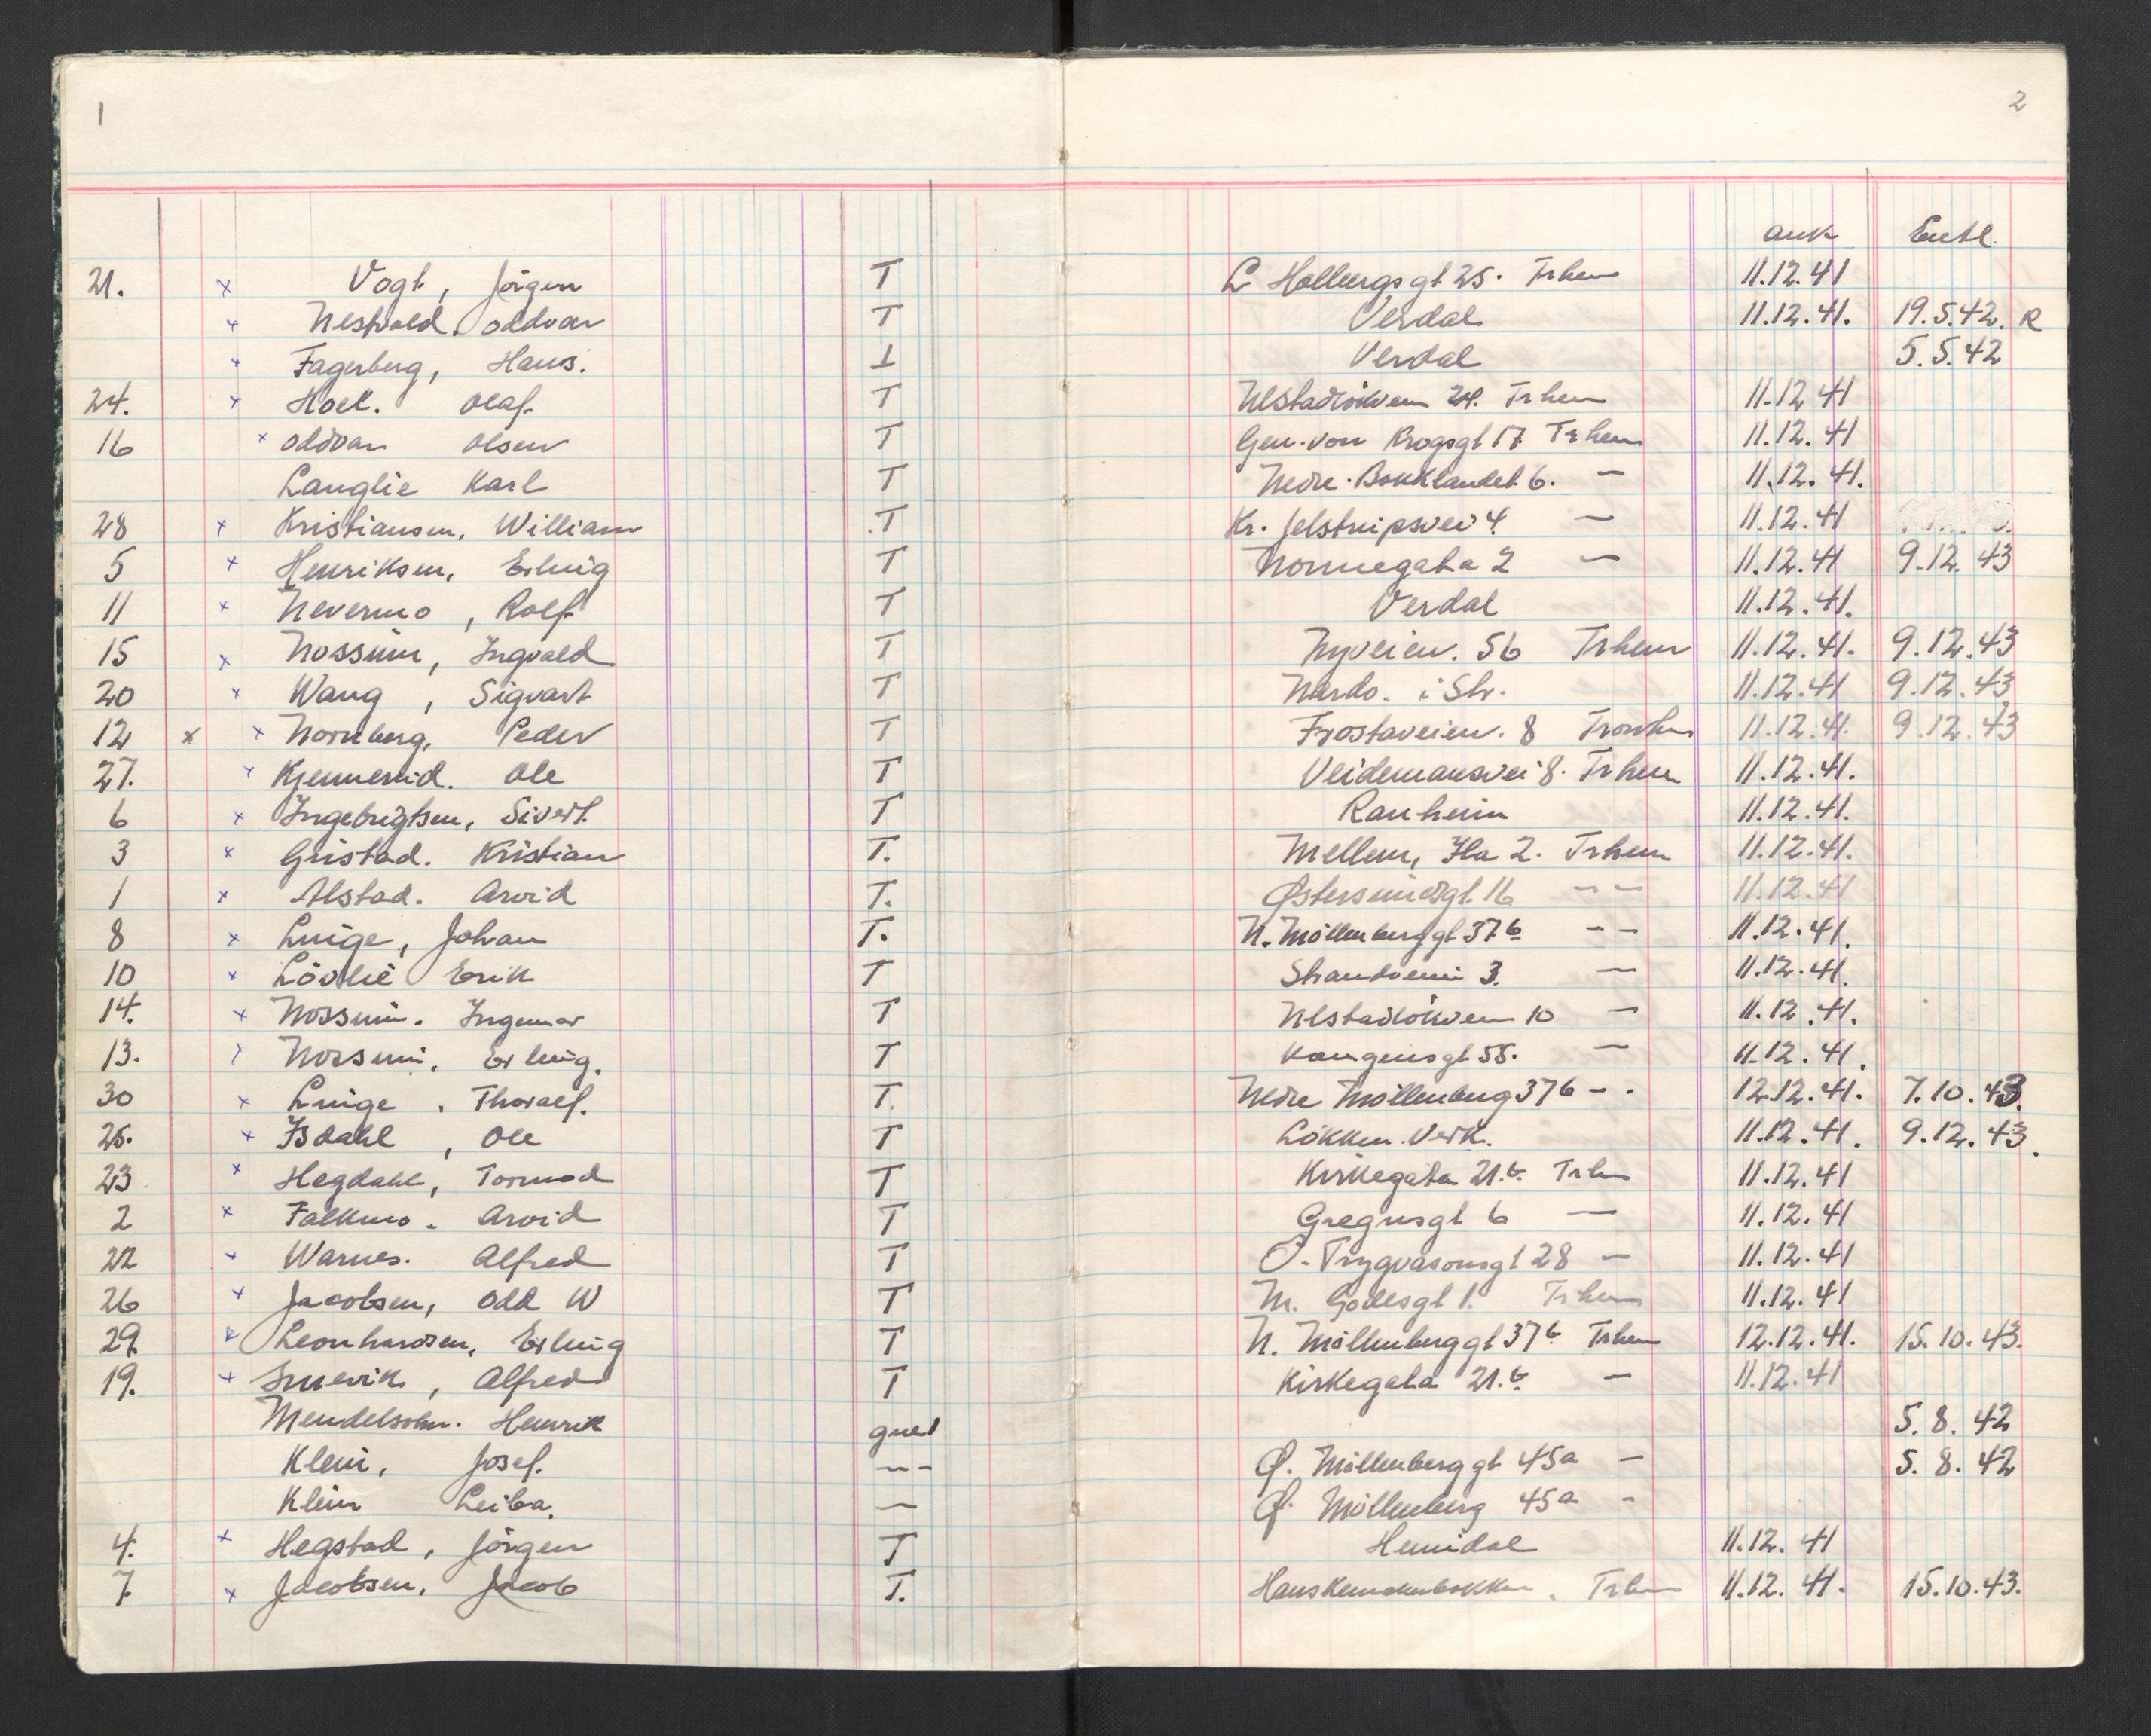 1
2
ank Entl.
21. x Vogt, Jörgen T L Holbergsgt 25. Trhem 11.12.41
x Nestvold. Oddvar T Verdal 11.12.41. 19.5.42. R
x Fagerberg, Hans. T Verdal 5.5.42
24. x Hoel. Olaf. T 24. Trhem 11.12 41
16 x Oddvar Olsen T Gen. von Krogsgt 17 Trhem 11.12.41
Langlie Karl T Nedre. Bakklandet 6. — 11.12.41.
28 x Kristiansen, William T Kr. Jelstrupsvei 4. — 11.12.41
5 x Henriksen, Erling T Nonnegata 2 — 11.12.41 9.12.43
11 x Nevermo, Rolf T Verdal 11.12.41.
15 x Nossum, Ingvald T Nyveien. 56 Trhem 11.12.41. 9.12.43
20 x Wang, Sigvart T Nardo. i Str. 11.12.41 9.12.43
12 x x Nornberg, Peder T Frostaveien. 8 Tronhm 11.12.41. 9.12.43
27. x Kjennerud. Ole T Veidemansvei 8. Trhem 11.12.41.
6 x Ingebrigtsen, Sivert. T Ranheim 11.12.41.
3 x Gristad. Kristian T. Mellem, Ila 2. Trhem 11.12.41.
1 x Alstad. Arvid T. Østersundsgt 16 — — 11.12.41
8 x Linge, Johan T. N. Möllenberggt 37b — — 11.12.41.
10 x Lövlie Erik T Strandveien 3. — 11.12.41.
14. x Nossum. Ingemar T 10 — 11.12.41.
13. x Nossum, Erling. T Kongensgt 55. — 11.12.41.
30 x Linge. Thoralf. T. Nedre Möllenberg 37b — . 12.12.41. 7.10.43.
25. x Isdahl, Ole T Lökken. Verk. 11.12.41. 9.12.43.
23 x Hegdahl, Tormod T Kirkegata 21.b Trhm 11.12.41
2 x Falkmo. Arvid T Gregusgt 6 — 11.12.41
22 x Warnes. Alfred T O. Trygvasonsgt 28 — 11.12.41
26 x Jacobsen, Odd W T M. Godesgt 1. Trhem 11.12.41
29. x Leonhardsen, Erling T N. Möllenberggt 37b Trhem 12.12.41. 15.10.43.
19. x Smevik, Alfred T Kirkegata 21.b — 11.12.41
Mendelsohn. Henrik 5.8.42
Klein, Josef. — - Ø. Möllenberggt 45a — 5.8.42
Klein Leiba. — Ø. Möllenberg 45a -
4. x Hegstad, Jörgen T Heimdal 11.12.41
7. x Jacobsen, Jacob T. Trhm 11.12.41. 15.10.43.